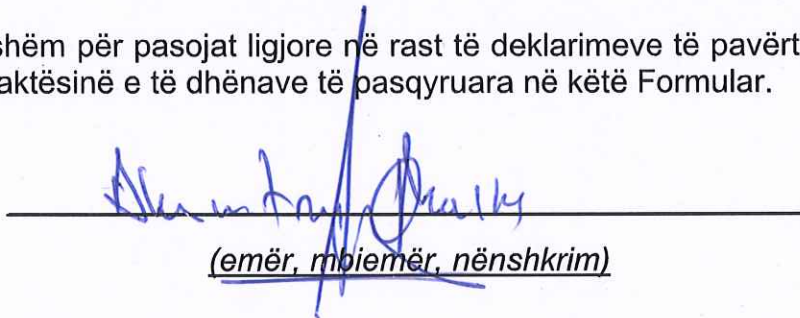 shëm për pasojat ligjore në rast të deklarimeve të pavërt
aktësinë e të dhënave të pasqyruara në këtë Formular.
(emër, mbiemër, nënshkrim)